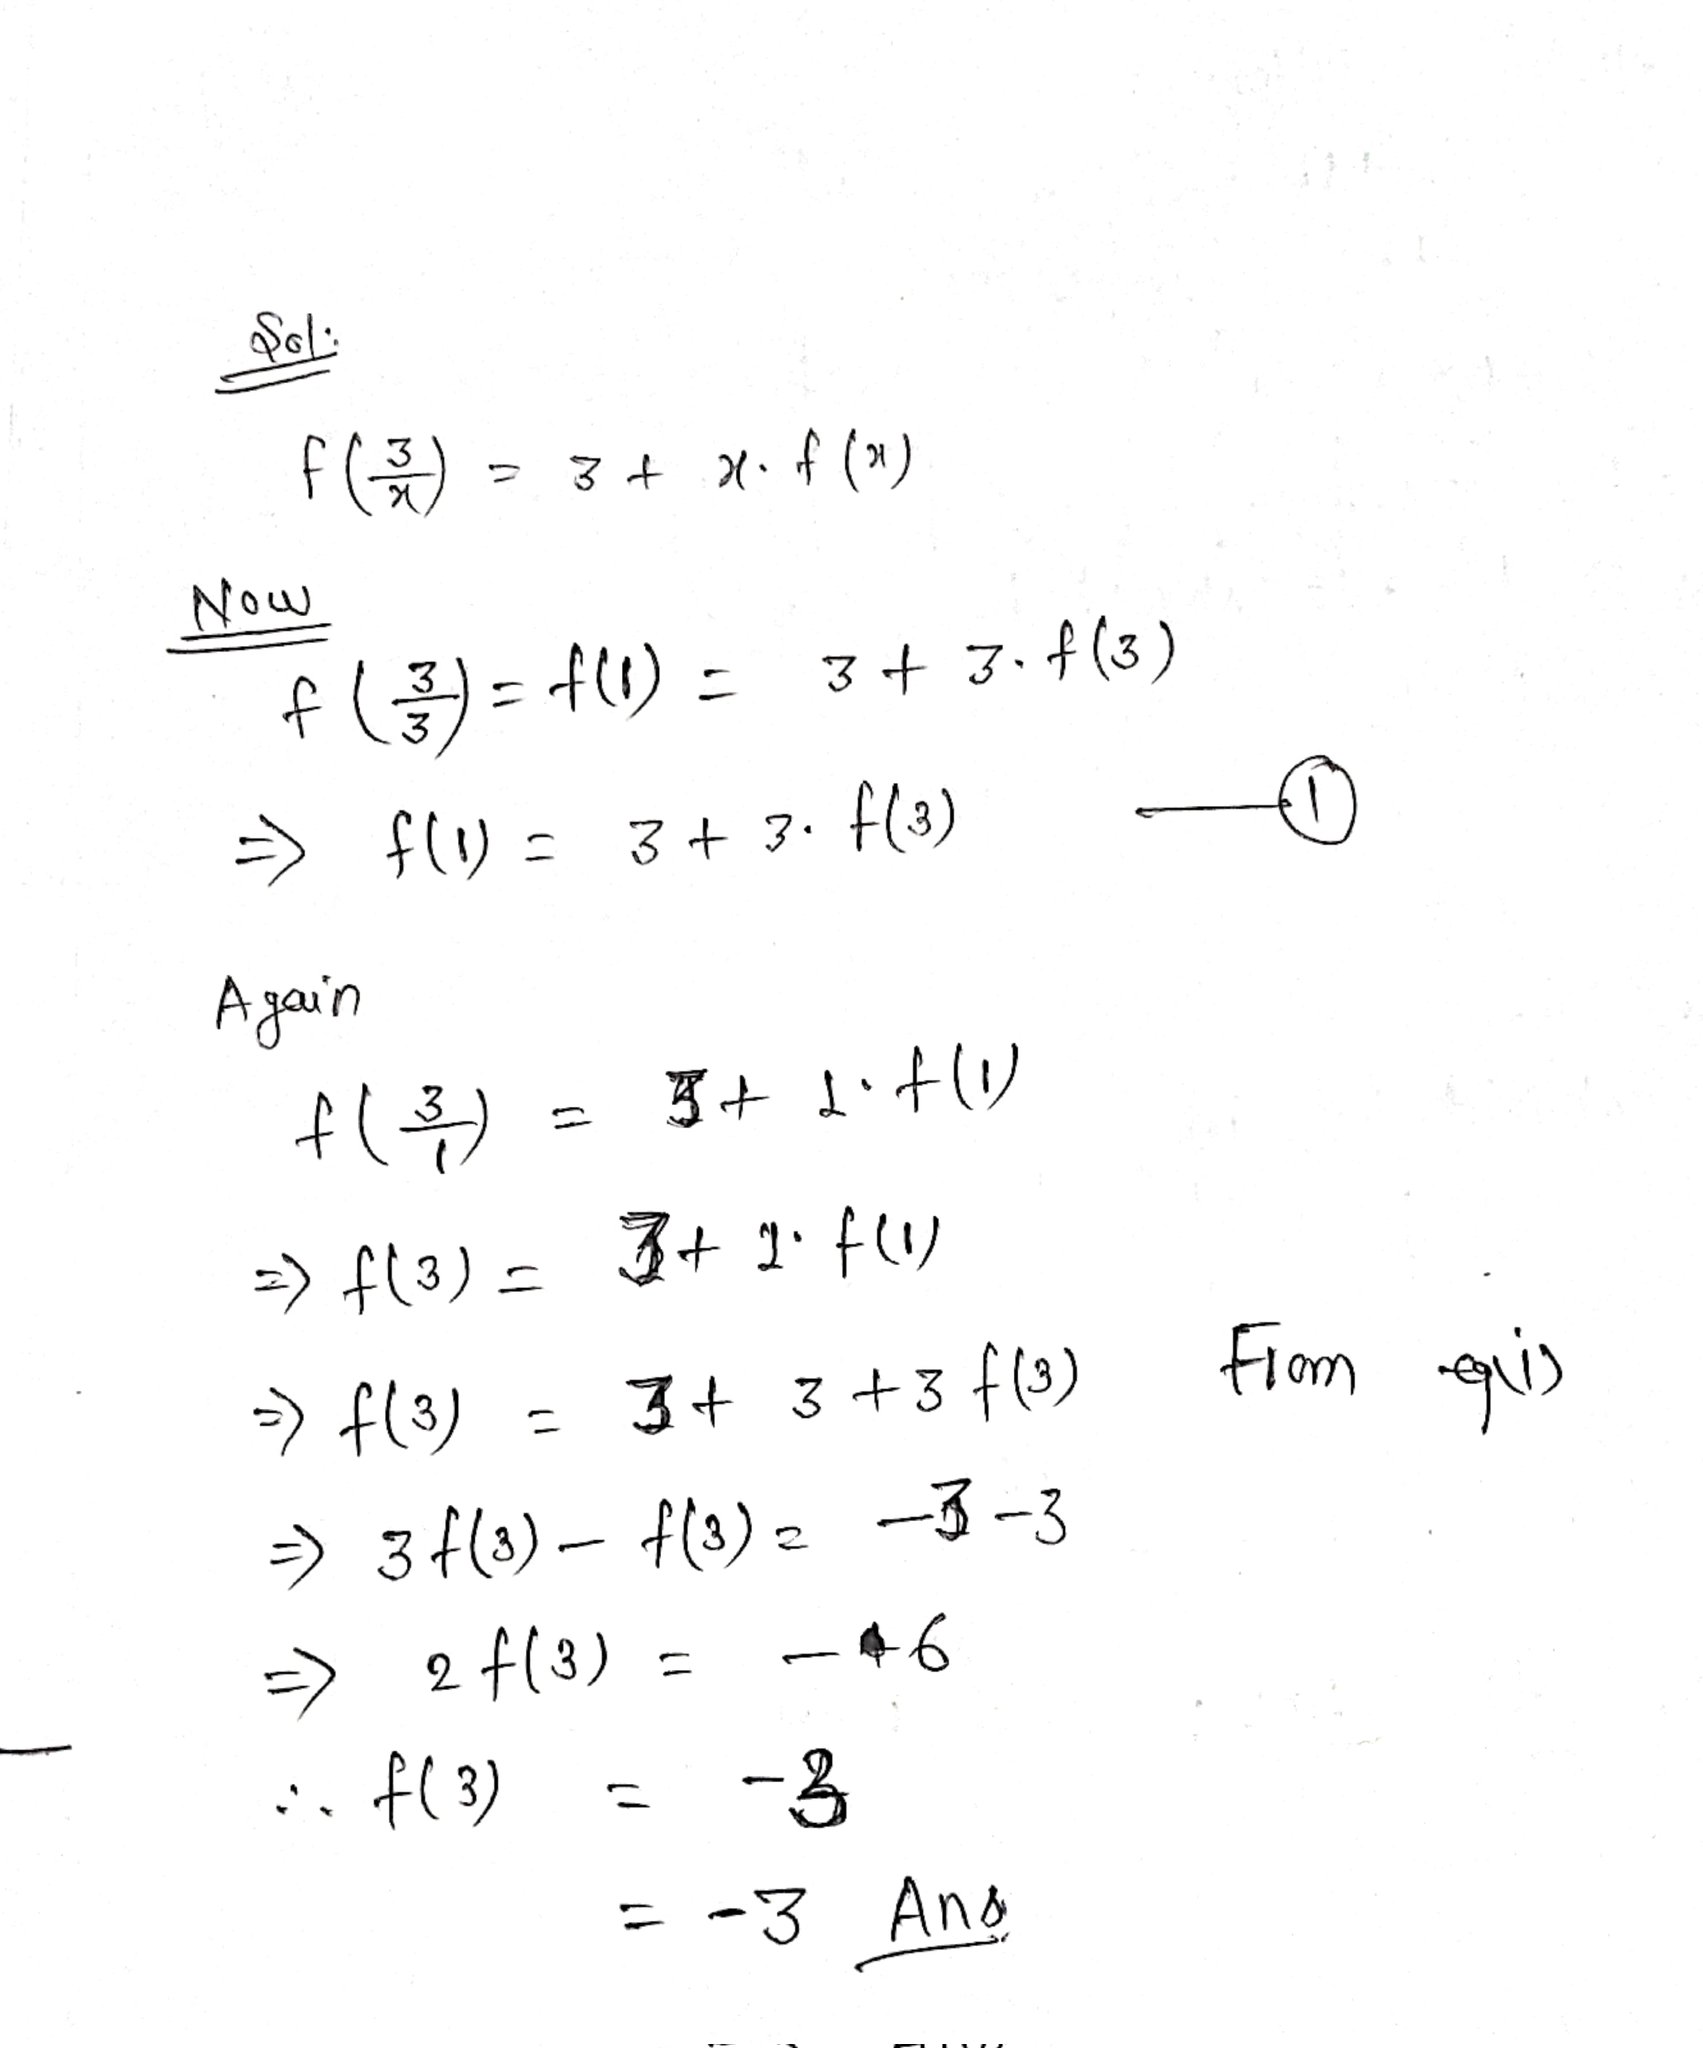 Sol:
f(3/x) = 3 + x. f(x)
Now
f(3/3) = f(1) = 3 + 3. f(3)
⇒ f(1) = 3 + 3. f(3) —①
Again
f(3/1) = 3 + 1. f(1)
⇒ f(3) = 3 + 1. f(1)
⇒ f(3) = 3 + 3 + 3 f(3) From eq(i)
⇒ 3 f(3) - f(3) = -3 -3
⇒ 2 f(3) = - 6
∴ f(3) = -3
= -3 Ans